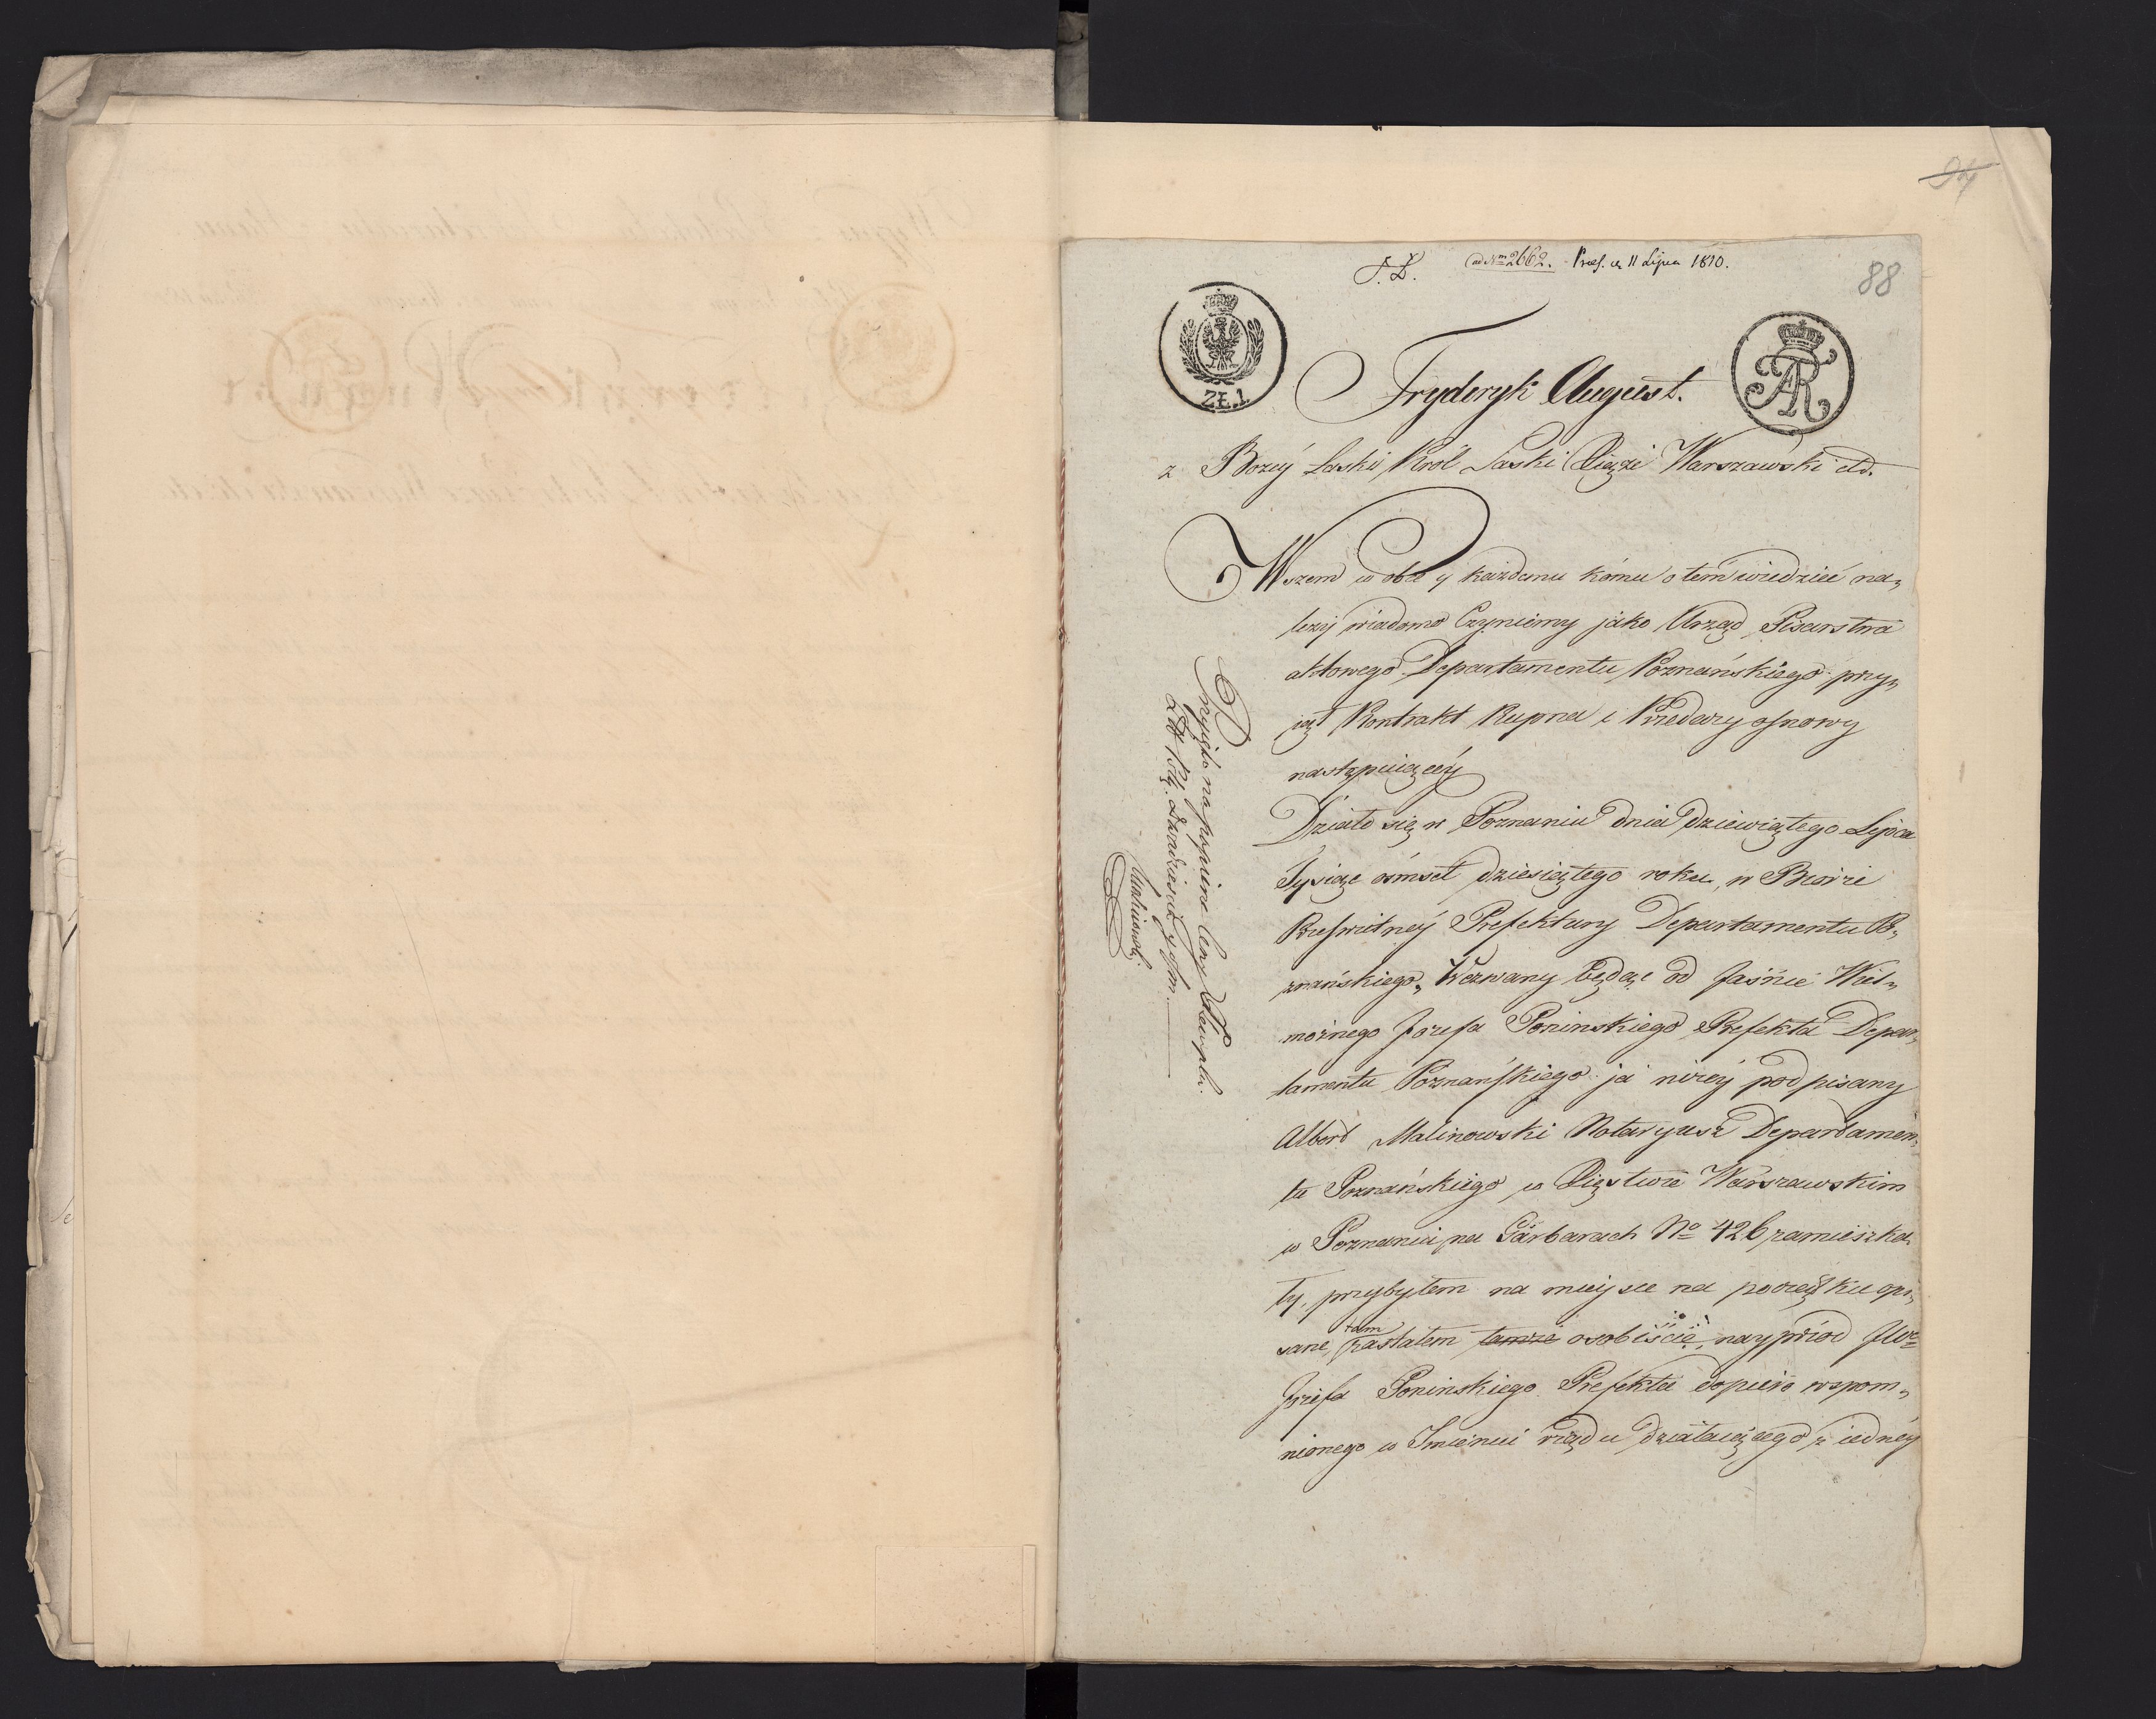 94
88
S. L. ad Nrm 2662. Præs. d. 11 Lipca 1810.
ZŁ.1.
FAR
Fryderyk August.
z Bozéy Łaski Krol Saski Xiąże Warszawski etd.
Wszem w obec y każdemu komu o tem wiedzieć na„
leży wiadomo Czyniemy jako Urząd Pisarstwa
aktowego Departamentu Poznańskiego przy„
jął Kontrakt Kupna i Przedaży osnowy
nastąpuiącéy
Działo się w Poznaniu dnia dziewiątego Lipca
Tysiąc ośmset dziesiątego roku, w Biorze
Prześwietnéy Prefektury Departamentu Po„
znańskiego„ Wezwany będąc od Jaśnie Wiel„
możnego Jozefa Poninskiego Prefekta Depar„
tamentu Poznańskiego ja niżéy podpisany
Albert Malinowski Notaryusz Departamen„
tu Poznańskiego w Xięstwie Warszawskim
w Poznaniu na Garbarach No 426 zamieszka„
ły, przybyłem na mieysce na początku opi„
sane, tam zastałem tamże osobiście, nayprzód JWo
Józefa Poninskiego Prefekta dopiero wspom„
nionego w Imieniu rządu działaiącego z iednéy
Przyięto na papier ceny Stempla.
Zł. Pol. dwadzieścia y ośm
Malinowski